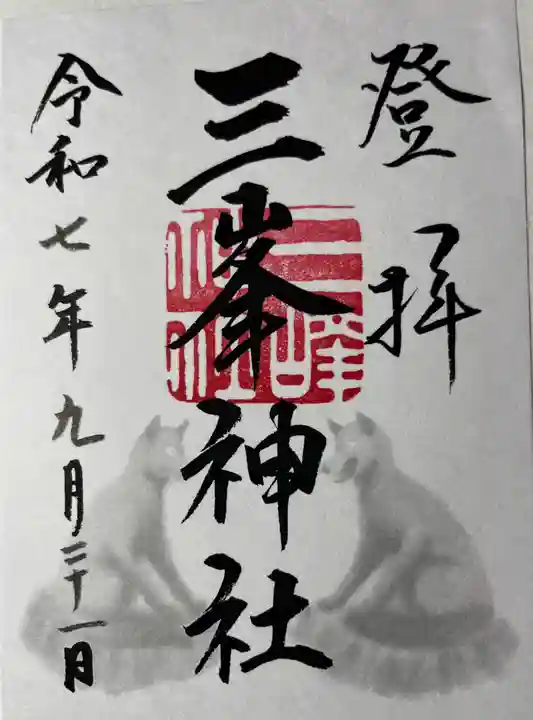 登拝
三峯神社
三峰神社
令和七年九月二十一日